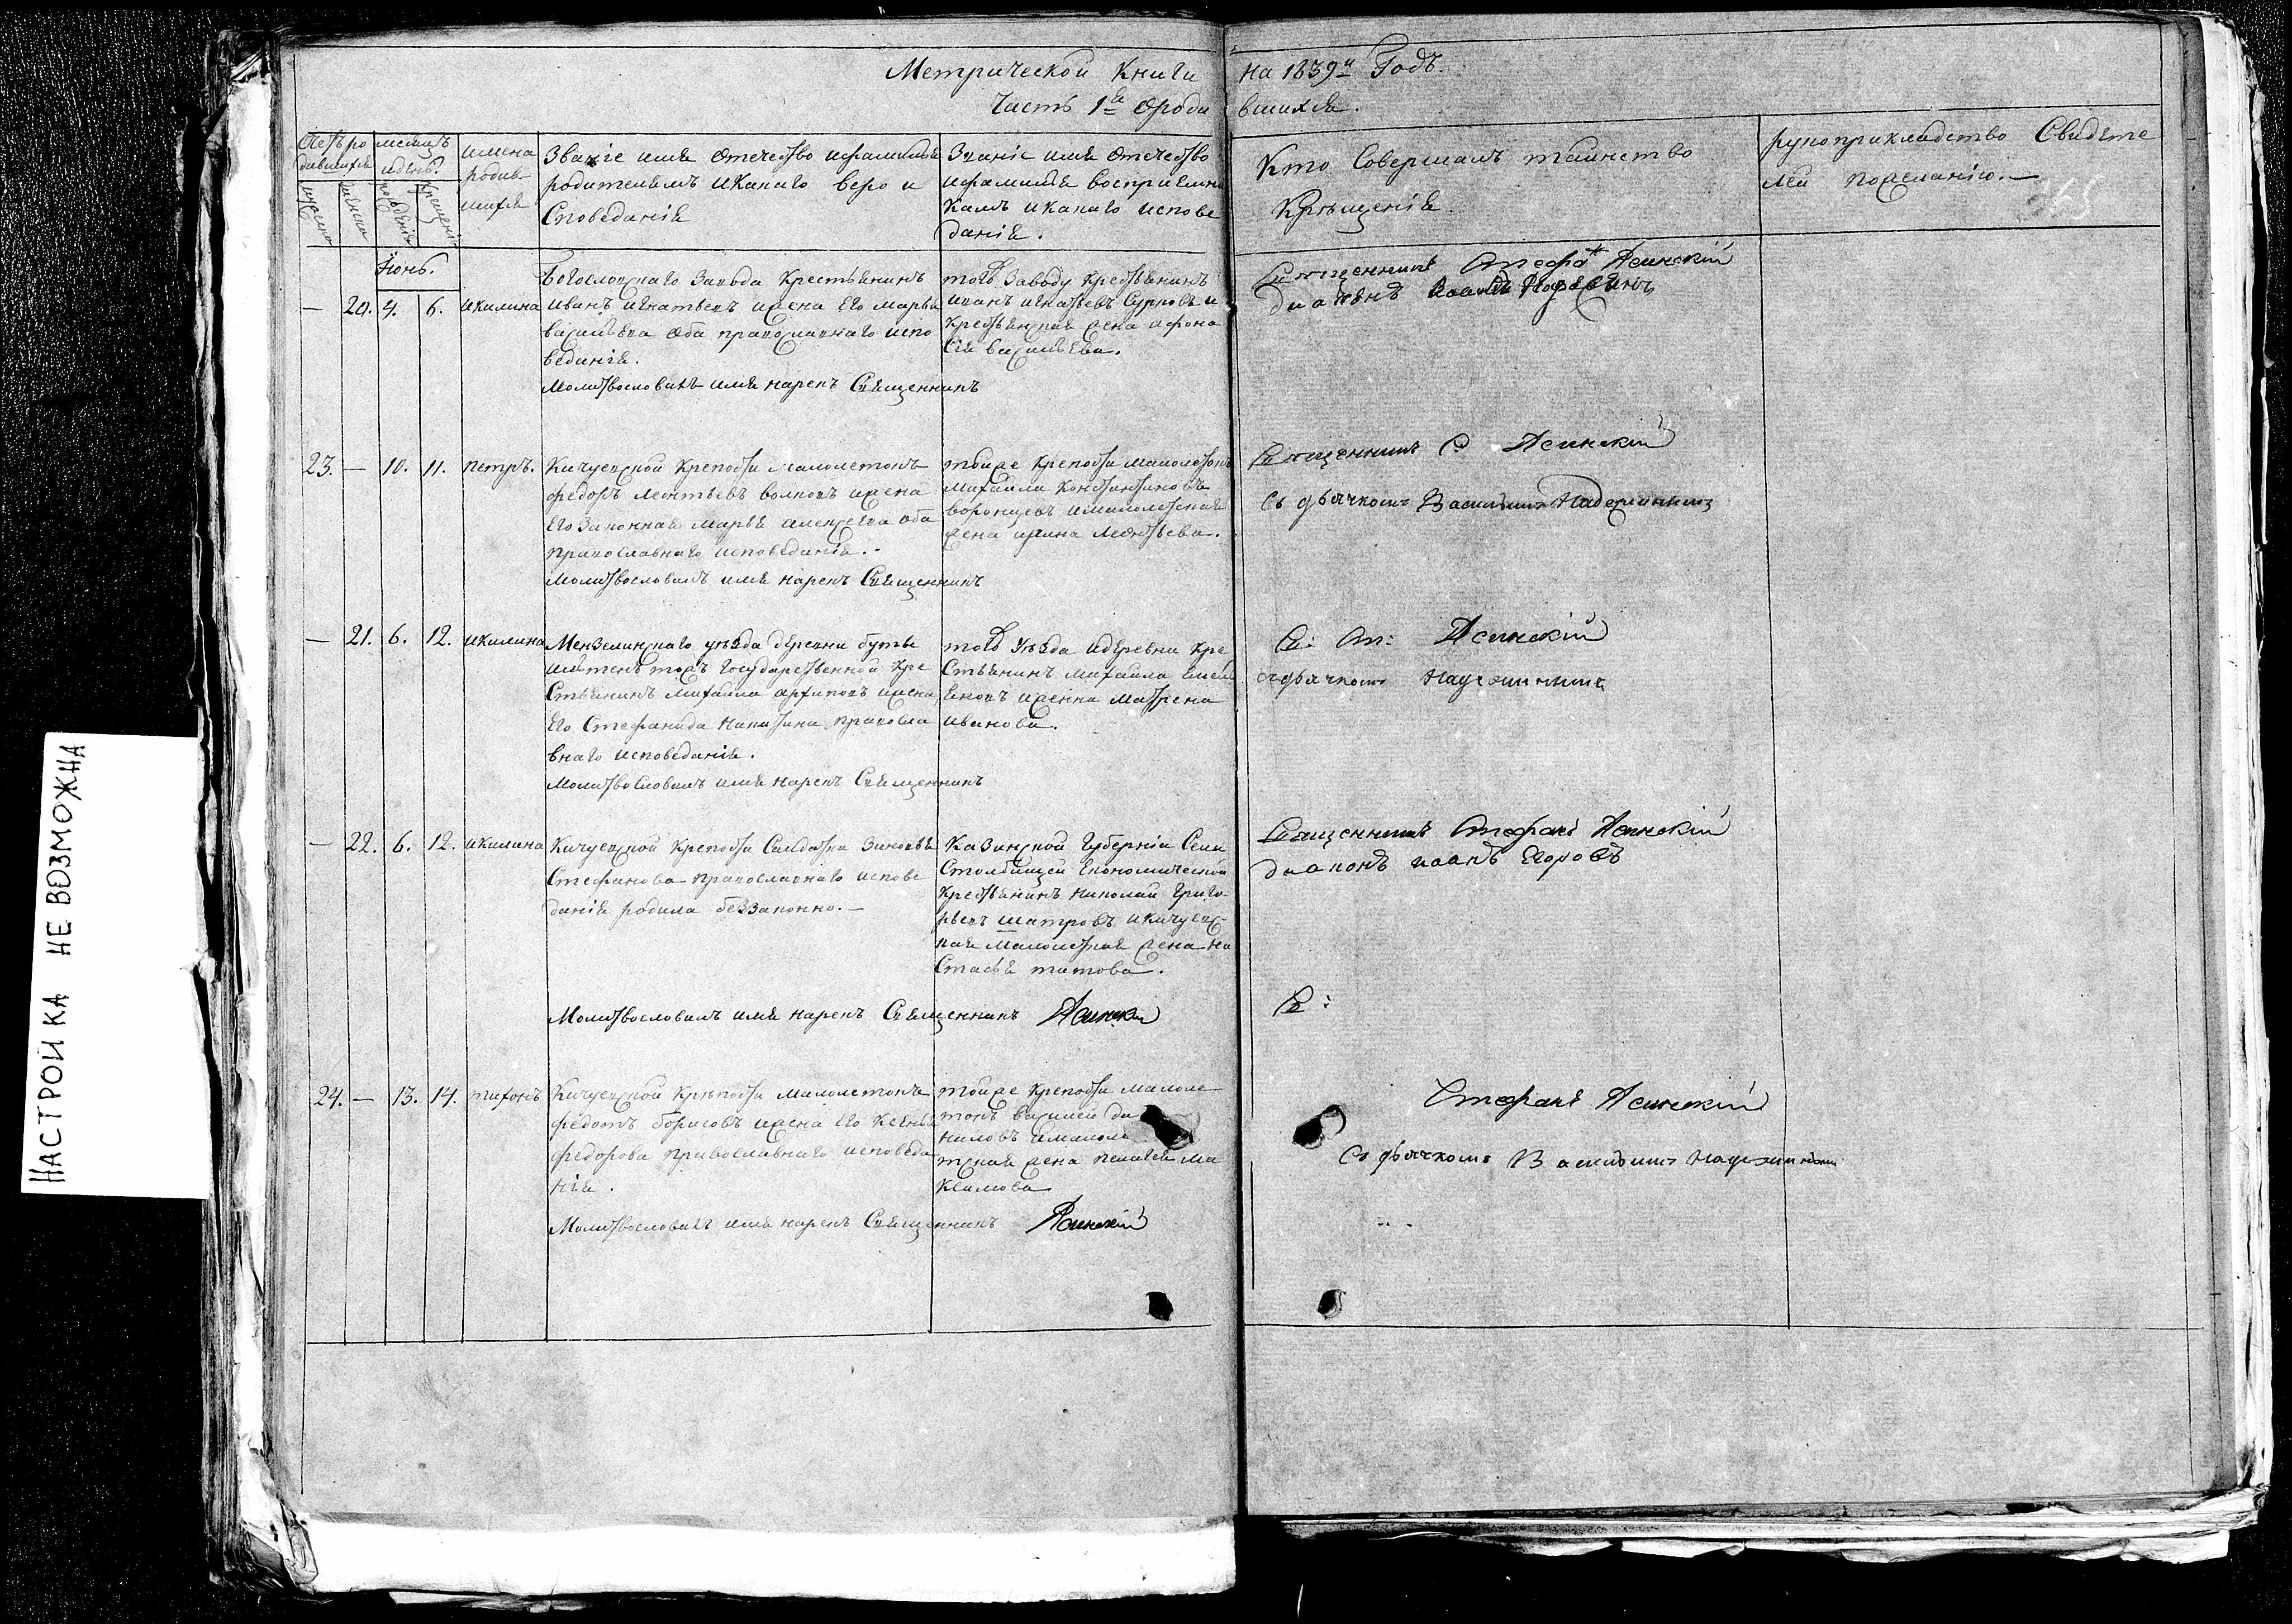 Метрической Книги на 1839й Годъ.
Часть 1я Ороди вшихся.
Счетъ ро
дившихся
мужеска
женска
месяцъ
идень.
рожденія
крещенія
имена
родив-
шихся
Званіе имя Отечество ифамилія
родителямъ икакаго веро и
Споведанія
Званіе имя Отечество
ифамилія восприемни
камъ икакаго испове
данія.
Кто Совершалъ таинство
Крещенія
рукоприкладство Свидете
лей пожеланію.—
Іюнь.
— 20. 4. 6. икилина
Богословскаго Завода Крестьянинъ
Иванъ игнатьевъ ижена Его марья
васильева оба православнаго испо
веданія.
Молитвословилъ имя нарекъ Священникъ
того Заводу крестьянинъ
иванъ игнатьевъ Суровъ и
крестьянская жена афона
Сія васильева.
Священникъ Стефа Ясинскій
диаконъ
23. — 10. 11. петръ.
Кичуевской Крепости малолетокъ
федоръ леонтьевъ волковъ ижена
Его Законная марья алексеева оба
православнаго исповеданія.-
молитвословилъ имя нарекъ Священникъ
тойже крепости малолетокъ
михайла константиновъ
воронцевъ ималолетская
жена ирина леонтьева.
Священникъ С Ясинскій
съ дьячкомъ Василіемъ Надежинымъ
— 21. 6. 12. икилина
Мензелинскаго уезда деревни буты
Государственной кре
Стьянинъ михайла архиповъ ижена
Его Стефанида Никитина правосла
внаго исповеданія.
Молитвословилъ имя нарекъ Священникъ
того Уезда идеревни кре
Стьянинъ михайла Емель
Еновъ иженка матрена
иванова.
Св: Ст: Ясинскій
сдьячкомъ Надежинымъ
— 22. 6. 12. икилина
Кичуевской крепости Салдатка Зиновья
Стефанова православнаго испове
данія родила беззаконно.—
Казанской Губерніи Села
Столбищей Економической
крестьянинъ николай Григо-
рьевъ шатровъ икичуевс-
кая малолетная жена на
Стасья титова.
Священникъ Стефанъ Ясинскій
диаконъ иоанъ Егоровъ
Молитвословилъ имя нарекъ Священникъ Ясинскій
Св:
24. — 13. 14. тихонъ
Кичуевской крепости малолетокъ
федотъ борисовъ ижена Его Ксенья
федорова православнаго исповеда
нія.
Молитвословилъ имя нарекъ Священникъ Ясинскій
тойже крепости малоле
токъ василей да
ниловъ ималоле
тская жена пелагея ма
Ксимова
Стефанъ Ясинскій
съ дьячкомъ Василіемъ Надежинымъ
НАСТРОЙКА НЕ ВОЗМОЖНА